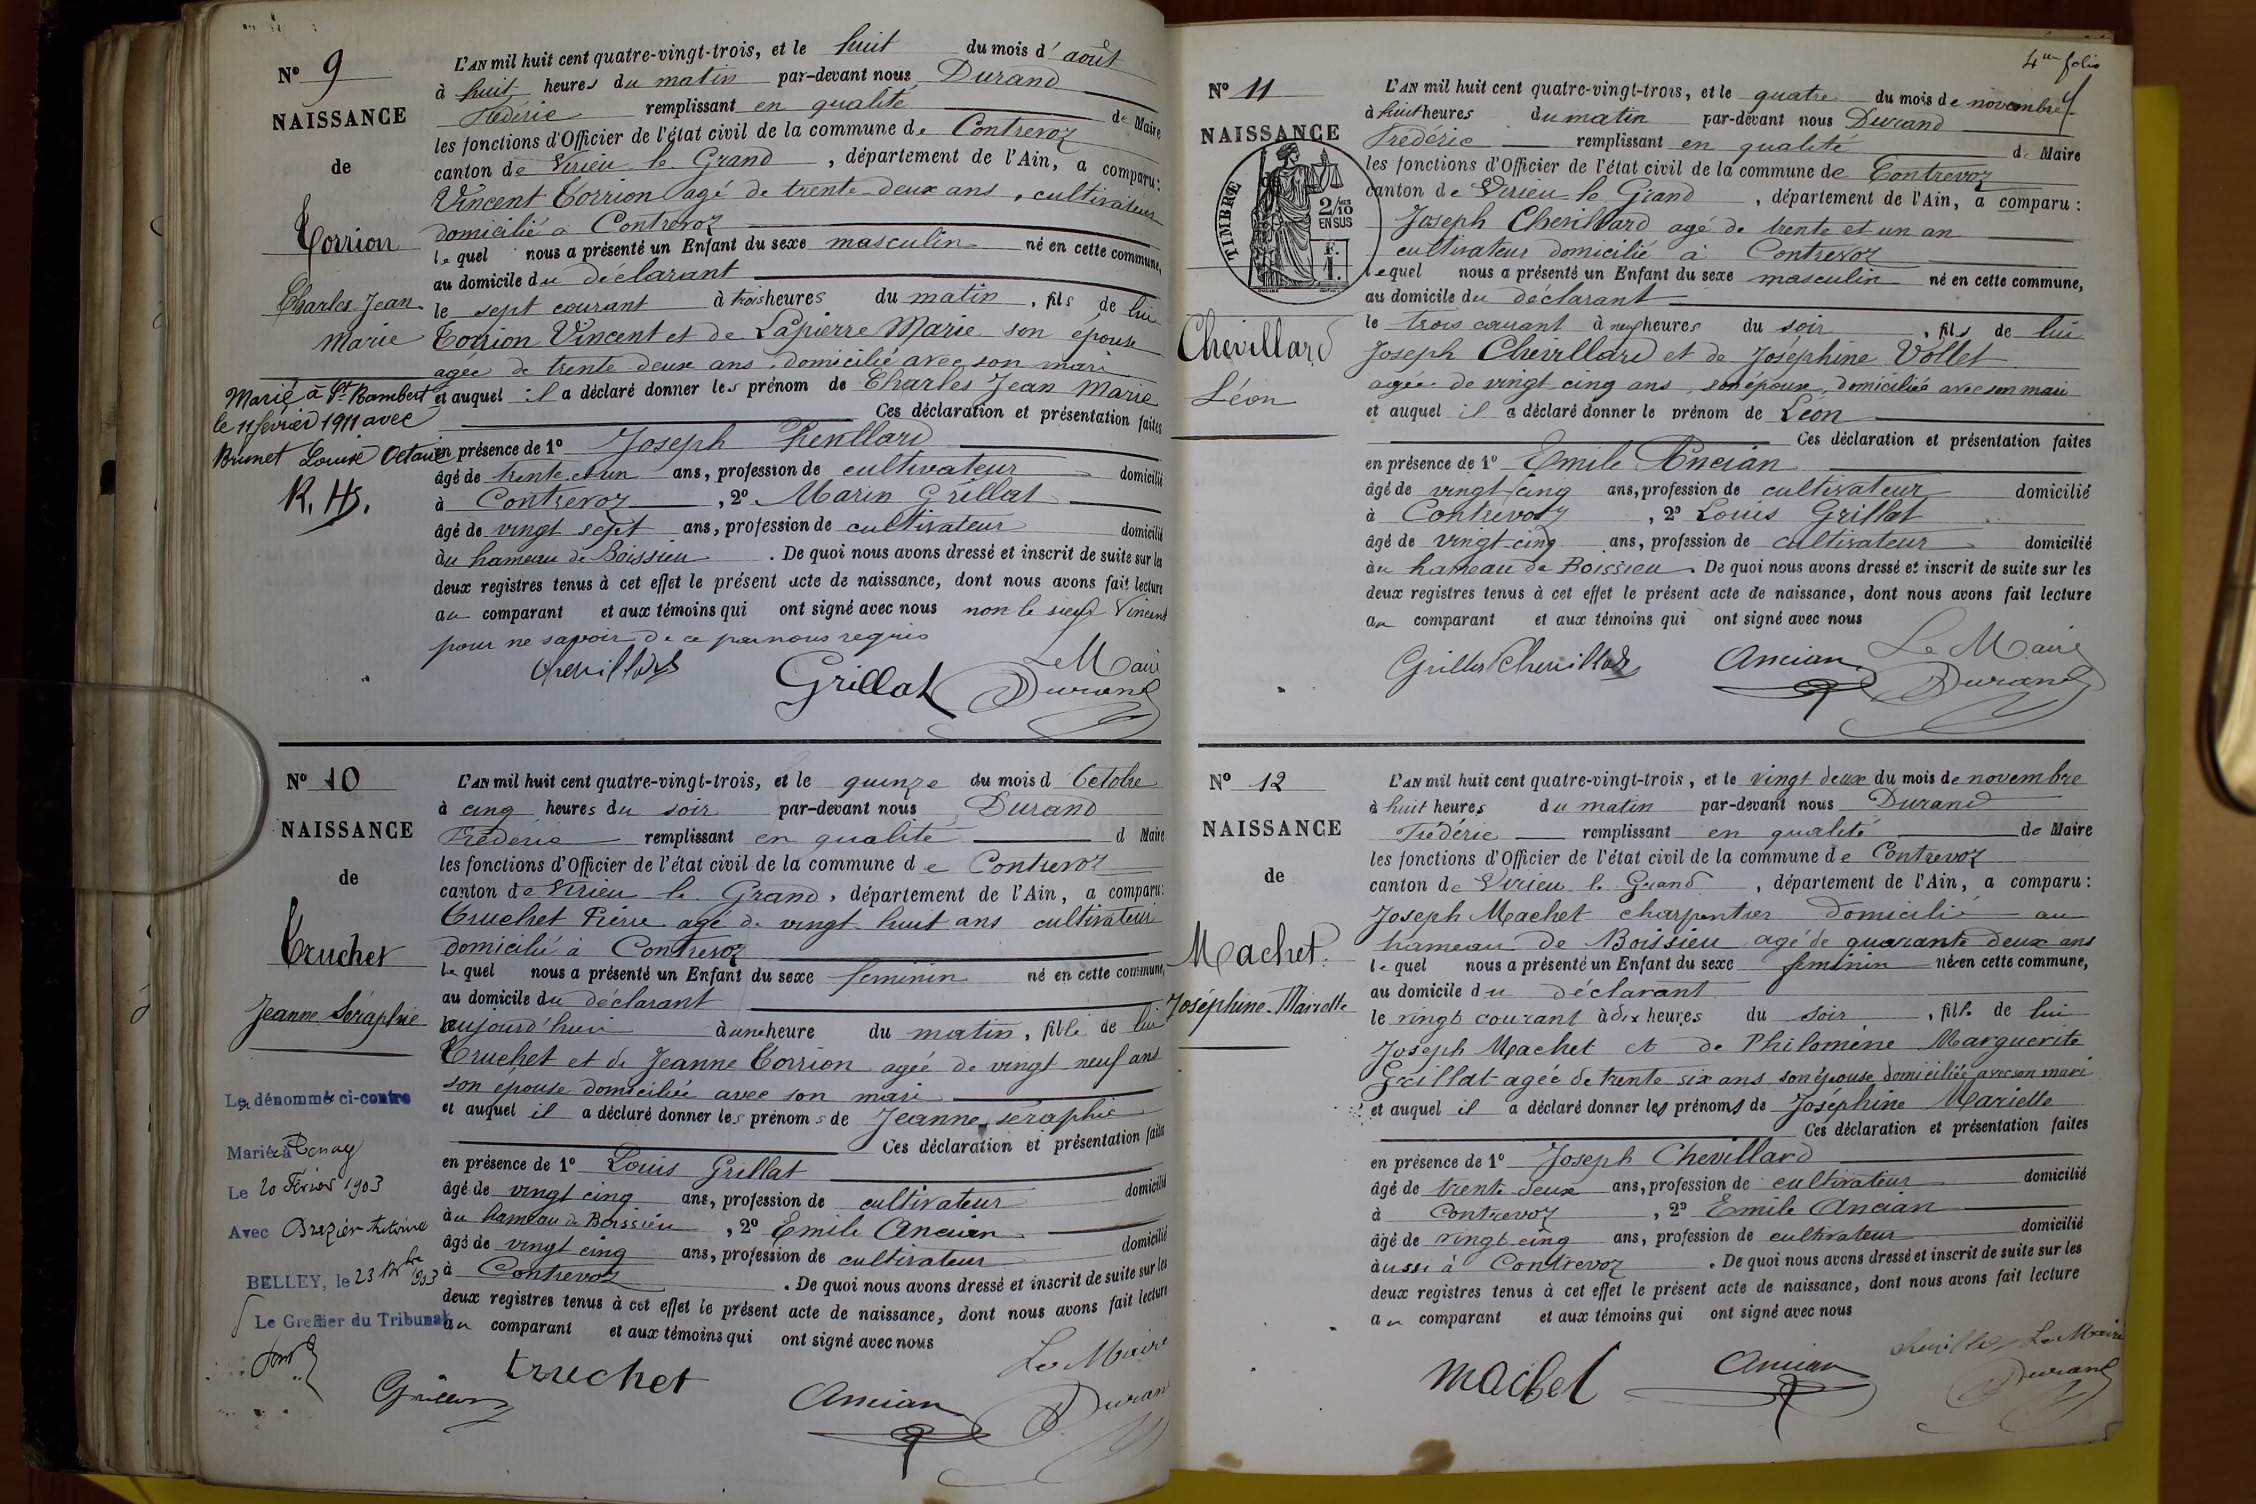 Nº 9
NAISSANCE
de
Torrion
Charles Jean
Marie
Marié à St Rambert
le 11 février 1911 avec
Brunet Louise Octavie
L'AN mil huit cent quatre-vingt-trois, et le huit du mois d'août
à huit heures du matin par-devant nous Durand
Frédéric remplissant en qualité de Maire
les fonctions d'Officier de l'état civil de la commune de Contrevoz
canton de Virieu le Grand, département de l'Ain, a comparu:
Vincent Torrion agé de trente deux ans, cultivateur
domicilié à Contrevoz
lequel nous a présenté un Enfant du sexe masculin né en cette commune,
au domicile du déclarant
le sept courant à trois heures du matin, fils de lui
Torrion Vincent et de Lapierre Marie son épouse
agée de trente deux ans, domicilié avec son mari
et auquel il a déclaré donner les prénom de Charles Jean Marie
Ces déclaration et présentation faites
en présence de 1º Joseph Chevillard
âgé de trente et un ans, profession de cultivateur domicilié
à Contrevoz, 2º Marin Grillat
âgé de vingt sept ans, profession de cultivateur domicilié
du hameau de Boissieu. De quoi nous avons dressé et inscrit de suite sur les
deux registres tenus à cet effet le présent acte de naissance, dont nous avons fait lecture
au comparant et aux témoins qui ont signé avec nous non le sieur Vincent
pour ne savoir de ce par nous requis
Chevillard Grillat Le Maire
Durand
Nº 10
NAISSANCE
de
Truchet
Jeanne Séraphie
La dénommée ci-contre
Mariée à Tenay
Le 20 Février 1903
Avec Brezier Antoine
BELLEY, le 23 1903
Le Greffier du Tribunal
L'AN mil huit cent quatre-vingt-trois, et le quinze du mois d Octobre
à cinq heures du soir par-devant nous Durand
Frédéric remplissant en qualité d Maire
les fonctions d'Officier de l'état civil de la commune de Contrevoz
canton de Virieu le Grand, département de l'Ain, a comparu:
Truchet Pierre agé de vingt huit ans cultivateur
domicilié à Contrevoz
lequel nous a présenté un Enfant du sexe feminin né en cette commune,
au domicile du déclarant
aujourd'hui à une heure du matin, fille de lui
Truchet et de Jeanne Torrion agée de vingt neuf ans
son épouse domiciliée avec son mari
et auquel il a déclaré donner les prénoms de Jeanne séraphie
Ces déclaration et présentation faites
en présence de 1º Louis Grillat
âgé de vingt cinq ans, profession de cultivateur domicilié
au hameau de Boissieu, 2º Emile Ancian
âgé de vingt cinq ans, profession de cultivateur domicilié
à Contrevoz. De quoi nous avons dressé et inscrit de suite sur les
deux registres tenus à cet effet le présent acte de naissance, dont nous avons fait lecture
au comparant et aux témoins qui ont signé avec nous
truchet Le Maire
Grillat Ancian Durand
4me folio
Nº 11
NAISSANCE
TIMBRE
2/10
EN SUS
F.
1.
Chevillard
Léon
L'AN mil huit cent quatre-vingt-trois, et le quatre du mois de novembre
à huit heures du matin par-devant nous Durand
Frédéric remplissant en qualité de Maire
les fonctions d'Officier de l'état civil de la commune de Contrevoz
canton de Virieu le Grand, département de l'Ain, a comparu:
Joseph Chevillard agé de trente et un an
cultivateur domicilié à Contrevoz
lequel nous a présenté un Enfant du sexe masculin né en cette commune,
au domicile du déclarant
le trois courant à neuf heures du soir, fils de lui
Joseph Chevillard et de Joséphine Vollet
agée de vingt cinq ans, son épouse, domiciliée avec son mari
et auquel il a déclaré donner le prénom de Léon
Ces déclaration et présentation faites
en présence de 1º Emile Ancian
âgé de vingt cinq ans, profession de cultivateur domicilié
à Contrevoz, 2º Louis Grillat
âgé de vingt-cinq ans, profession de cultivateur domicilié
au hameau de Boissieu. De quoi nous avons dressé et inscrit de suite sur les
deux registres tenus à cet effet le présent acte de naissance, dont nous avons fait lecture
au comparant et aux témoins qui ont signé avec nous
Grillat Chevillard Ancian Le Maire
Durand
Nº 12
NAISSANCE
de
Machet
Joséphine Marielle
L'AN mil huit cent quatre-vingt-trois, et le vingt deux du mois de novembre
à huit heures du matin par-devant nous Durand
Frédéric remplissant en qualité de Maire
les fonctions d'Officier de l'état civil de la commune de Contrevoz
canton de Virieu le Grand, département de l'Ain, a comparu:
Joseph Machet charpentier domicilié au
hameau de Boissieu agé de quarante deux ans
lequel nous a présenté un Enfant du sexe feminin né en cette commune,
au domicile du déclarant
le vingt courant à dix heures du soir, fille de lui
Joseph Machet et de Philomène Marguerite
Grillat agée de trente six ans son épouse domiciliée avec son mari
et auquel il a déclaré donner les prénoms de Joséphine Marielle
Ces déclaration et présentation faites
en présence de 1º Joseph Chevillard
âgé de trente deux ans, profession de cultivateur domicilié
à Contrevoz, 2º Emile Ancian
âgé de vingt cinq ans, profession de cultivateur domicilié
aussi à Contrevoz. De quoi nous avons dressé et inscrit de suite sur les
deux registres tenus à cet effet le présent acte de naissance, dont nous avons fait lecture
au comparant et aux témoins qui ont signé avec nous
machet Ancian Chevillard Le Maire
Durand